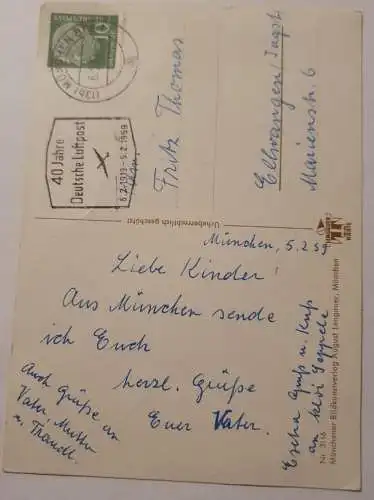 DEUTSCHE BUNDESPOST
10
(13b) MÜNCHEN
40 Jahre
Deutsche Luftpost
6.2.1919 - 5.2.1959
Fritz Thomas
Ellwangen/Jagst
Marienstr. 6
Urheberrechtlich geschützt
München, 5.2.59
Liebe Kinder!
Aus München sende
ich Euch
herzl. Grüße
Euer Vater.
Auch Grüße an
Vater, Mutter
u. Traudl.
Gruß u. Kuß
an
Münchener Bildkunstverlag August Lengauer, München
Nr. 3156